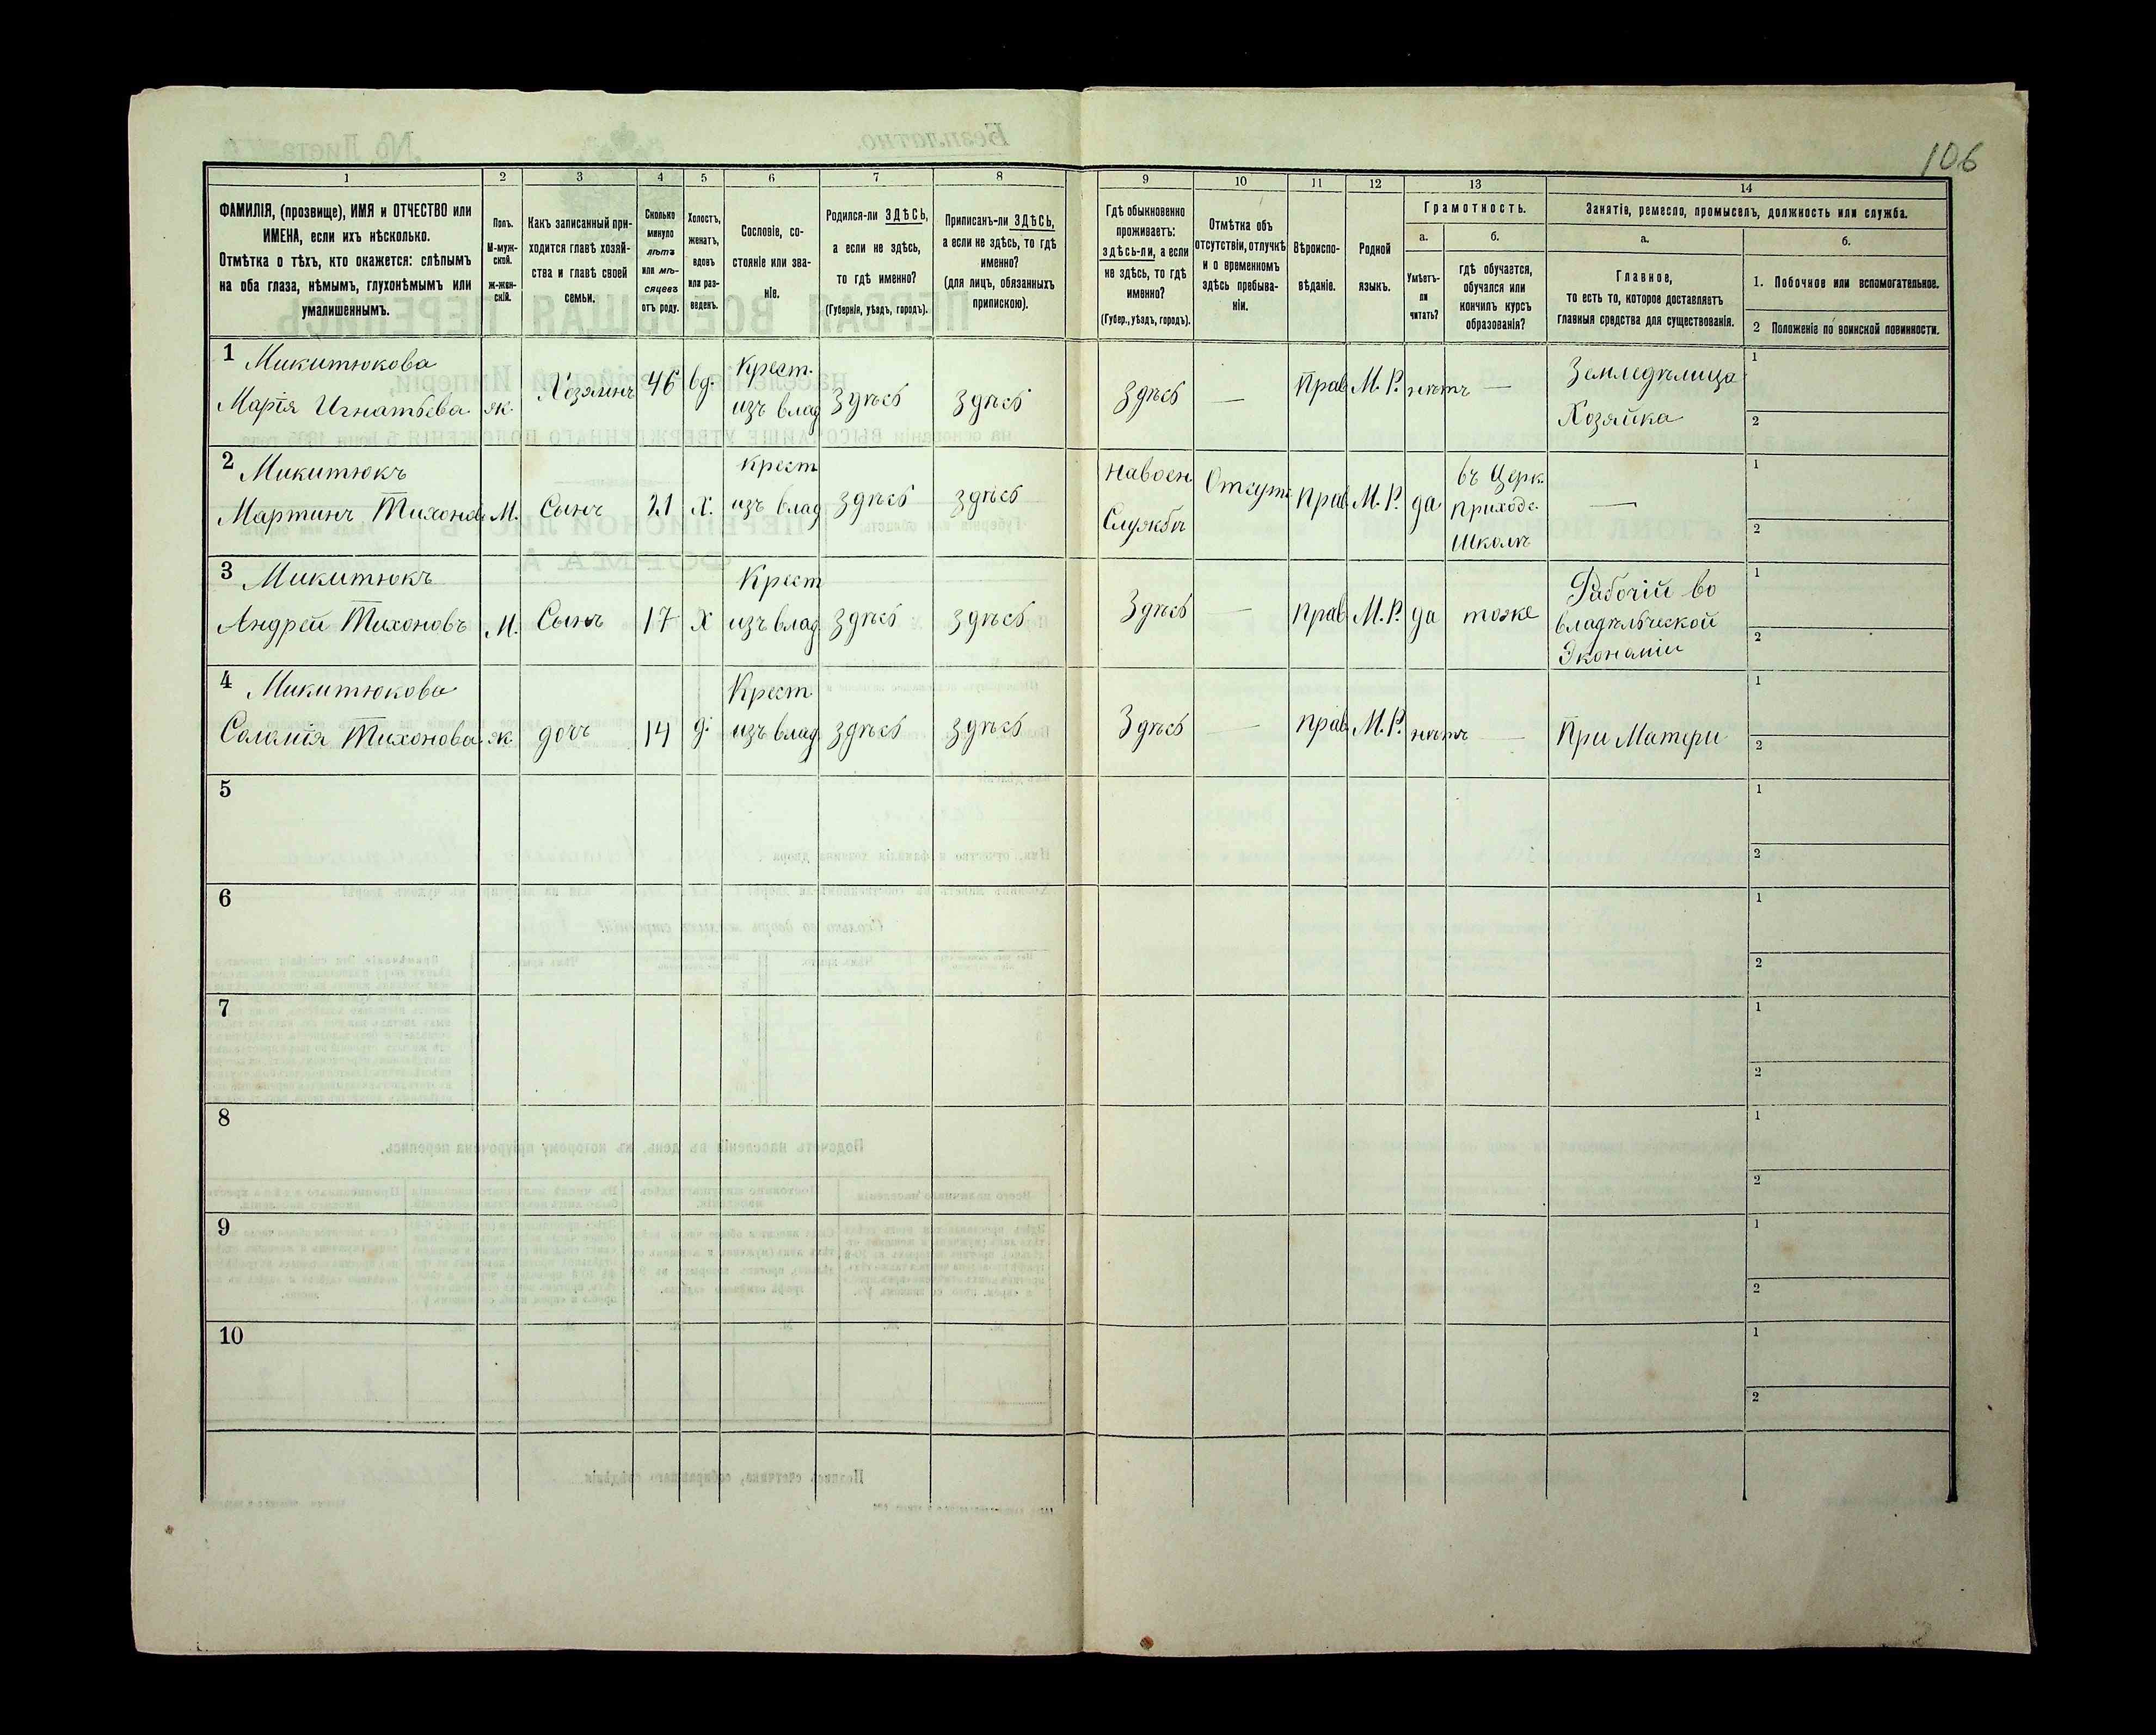 106
1 2 3 4 5 6 7 8 9 10 11 12 13 14
ФАМИЛІЯ, (прозвище), ИМЯ и ОТЧЕСТВО или
ИМЕНА, если ихъ нѣсколько.
Отмѣтка о тѣхъ, кто окажется: слѣпымъ
на оба глаза, нѣмымъ, глухонѣмымъ или
умалишеннымъ.
Полъ.
М-муж-
ской.
Ж-жен-
скій.
Какъ записанный при-
ходится главѣ хозяй-
ства и главѣ своей
семьи.
Сколько
минуло
лѣтъ
или мѣ-
сяцевъ
отъ роду.
Холостъ,
женатъ,
вдовъ
или раз-
веденъ.
Сословіе, со-
стояніе или зва-
ніе.
Родился-ли ЗДѢСЬ,
а если не здѣсь,
то гдѣ именно?
(Губернія, уѣздъ, городъ).
Приписанъ-ли ЗДѢСЬ,
а если не здѣсь, то гдѣ
именно?
(для лицъ, обязанныхъ
припискою).
Гдѣ обыкновенно
проживаетъ:
здѣсь-ли, а если
не здѣсь, то гдѣ
именно?
(Губер., уѣздъ, городъ).
Отмѣтка объ
отсутствіи, отлучкѣ
и о временномъ
здѣсь пребыва-
ніи.
Вѣроиспо-
вѣданіе.
Родной
языкъ.
Грамотность.
а.
Умѣетъ-
ли
читать?
б.
гдѣ обучается,
обучался или
кончилъ курсъ
образованія?
Занятіе, ремесло, промыселъ, должность или служба.
а.
Главное,
то есть то, которое доставляетъ
главныя средства для существованія.
б.
1. Побочное или вспомогательное.
2 Положеніе по воинской повинности.
1 Микитюкова
Марія Игнатьева
ж.
Хозяинъ
46
вд.
Крест.
изъ влад
Здѣсь
Здѣсь
Здѣсь
—
Прав
М. Р.
нѣтъ
—
Земледѣлица
Хозяйка
1
2
2 Микитюкъ
Мартинъ Тихонов
М.
Сынъ
21
Х.
крест
изъ влад
Здѣсь
Здѣсь
На воен
Службѣ
Отсутс
Прав
М. Р.
да
въ Церк.
приходс.
Школѣ
—
1
2
3 Микитюкъ
Андрей Тихоновъ
М.
Сынъ
17
Х
Крест
изъ влад
Здѣсь
Здѣсь
Здѣсь
—
Прав
М. Р.
да
тоже
Рабочій во
владѣльческой
Экономіи
1
2
4 Микитюкова
Саломія Тихонова
ж.
дочь
14
д.
Крест.
изъ влад
Здѣсь
Здѣсь
Здѣсь
—
прав
М. Р.
нѣтъ
—
При Матери
1
2
5
1
2
6
1
2
7
1
2
8
1
2
9
1
2
10
1
2